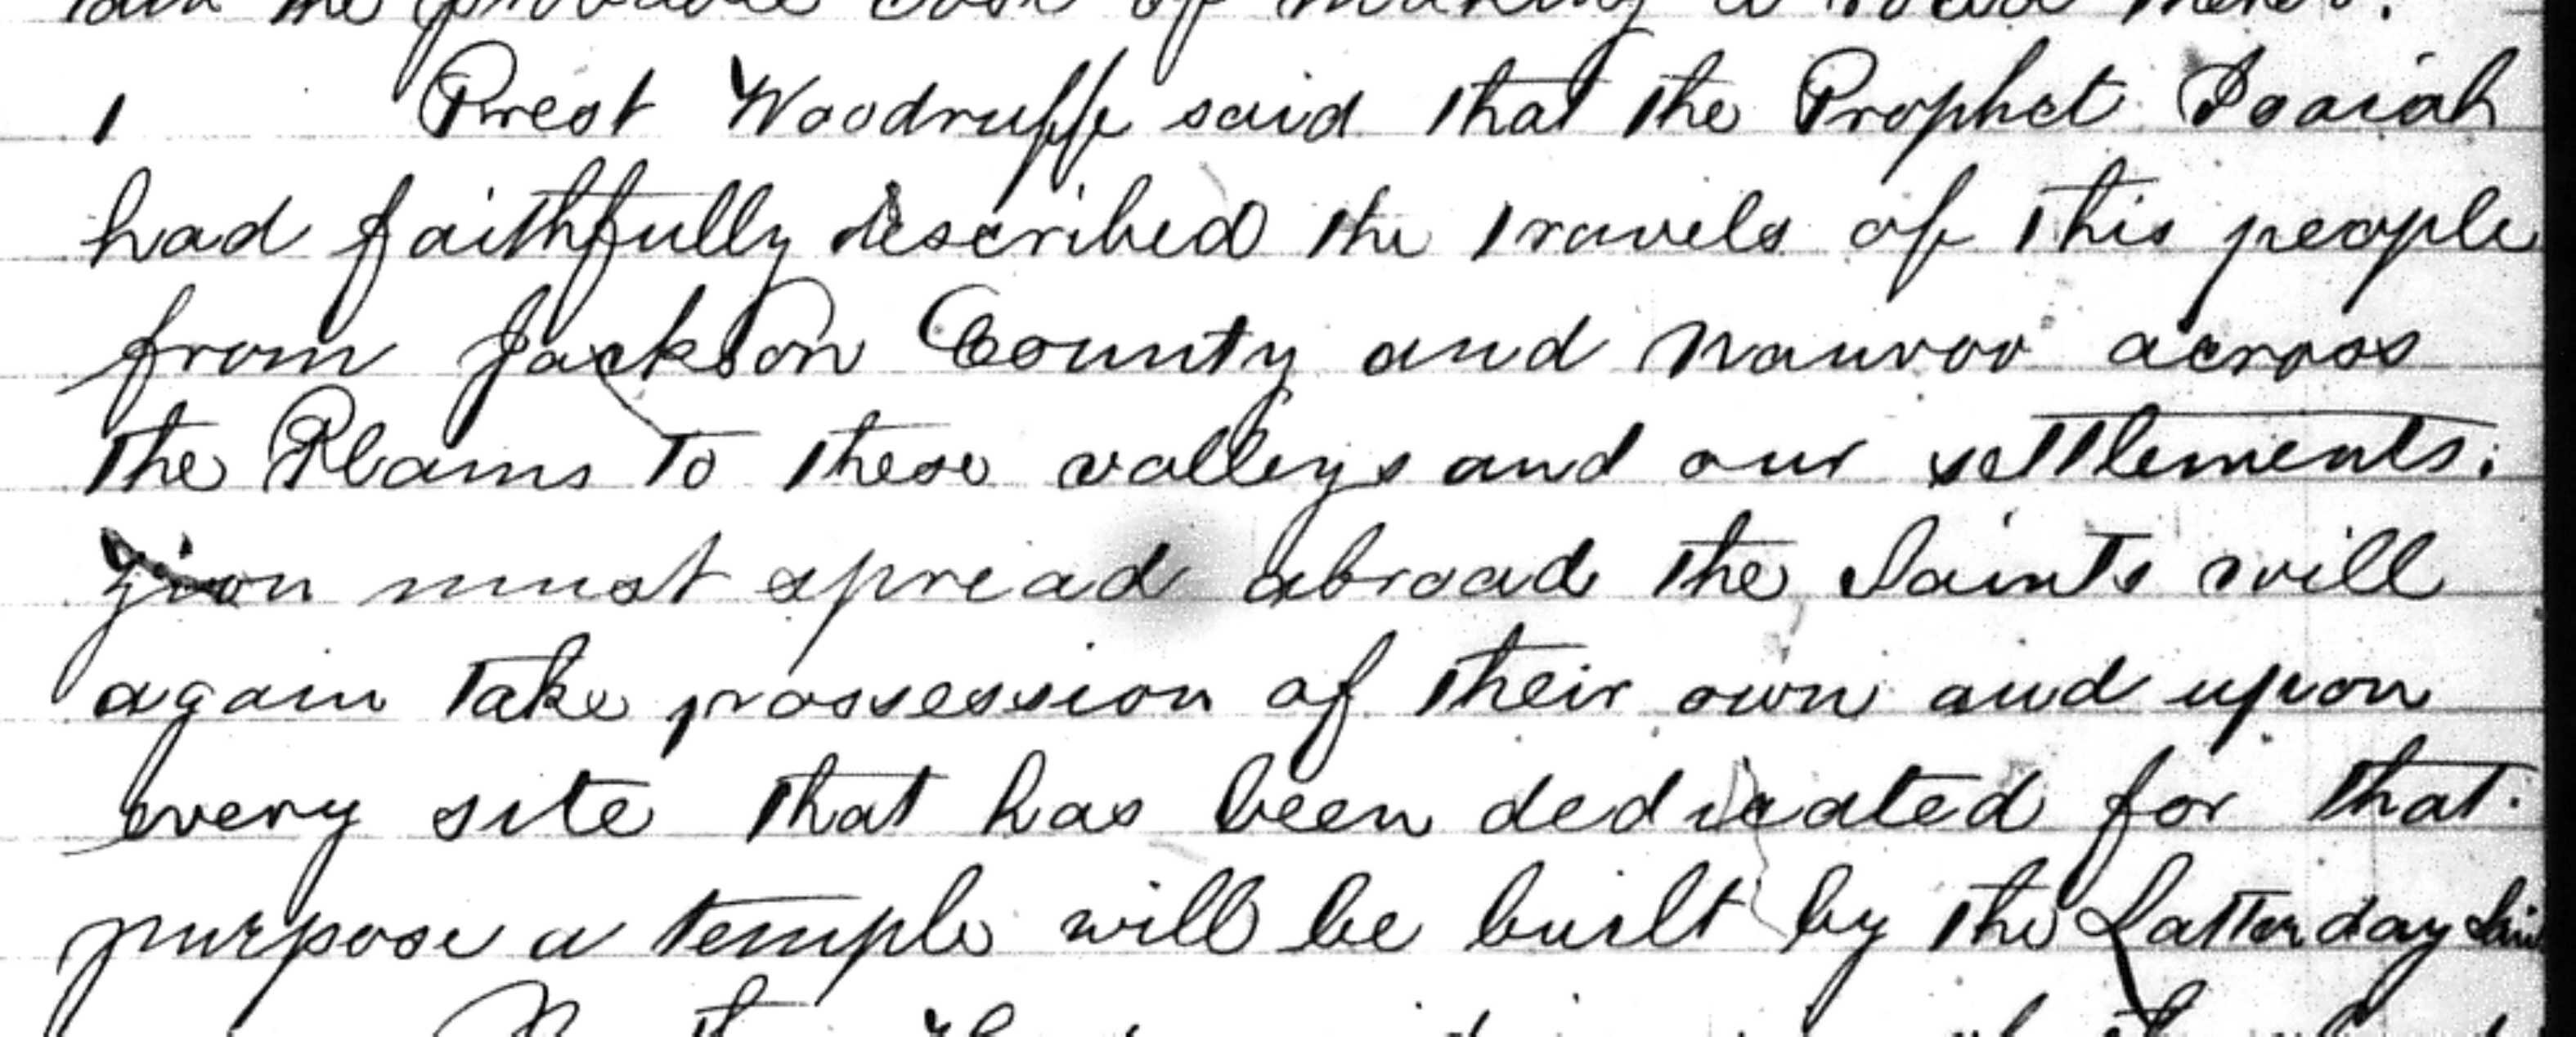 the probable cost of making a road there.
1 Prest Woodruffe said that the Prophet Isaiah
had faithfully described the travels of this people
from Jackson County and Nauvoo across
the Plains to these valleys and our settlements.
Zion must spread abroad the Saints will
again take possession of their own and upon
every site that has been dedicated for that
purpose a temple will be built by the Latter day